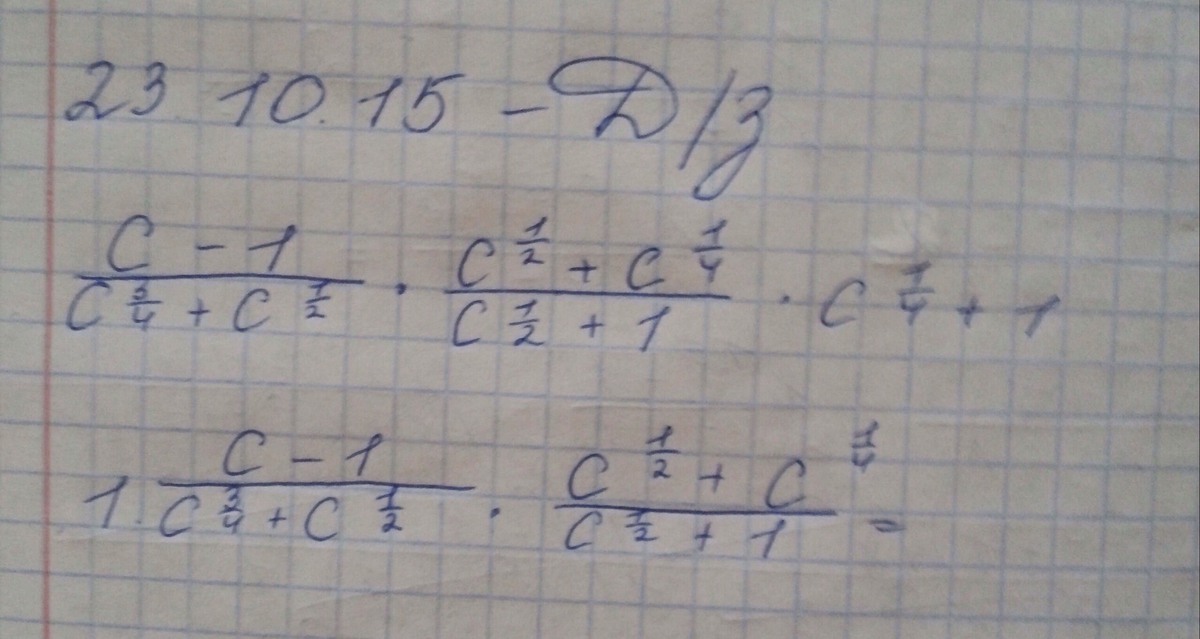 23 10.15 - Д/з
\frac{C - 1}{C^{\frac{3}{4}} + C^{\frac{1}{2}}} \cdot \frac{C^{\frac{1}{2}} + C^{\frac{1}{4}}}{C^{\frac{1}{2}} + 1} \cdot C^{\frac{1}{4}} + 1
1. \frac{C - 1}{C^{\frac{3}{4}} + C^{\frac{1}{2}}} \cdot \frac{C^{\frac{1}{2}} + C^{\frac{1}{4}}}{C^{\frac{1}{2}} + 1} =